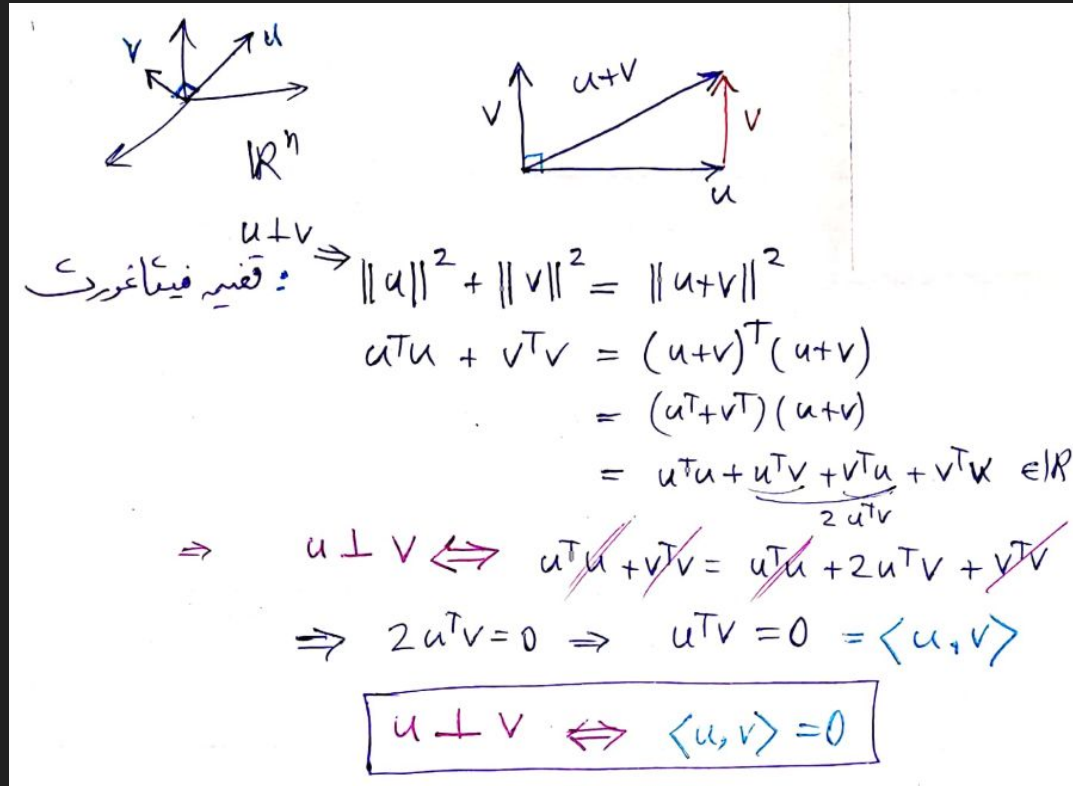 v u
ℝⁿ
v u+v v
u
u⊥v ⇒
قضیه فیثاغورث : ||u||² + ||v||² = ||u+v||²
uᵀu + vᵀv = (u+v)ᵀ(u+v)
= (uᵀ+vᵀ)(u+v)
= uᵀu + uᵀv + vᵀu + vᵀv ∈ℝ
2uᵀv
⇒ u ⊥ v ⇔ uᵀu + vᵀv = uᵀu + 2uᵀv + vᵀv
⇒ 2uᵀv = 0 ⇒ uᵀv = 0 = <u,v>
u ⊥ v ⇔ <u,v> = 0